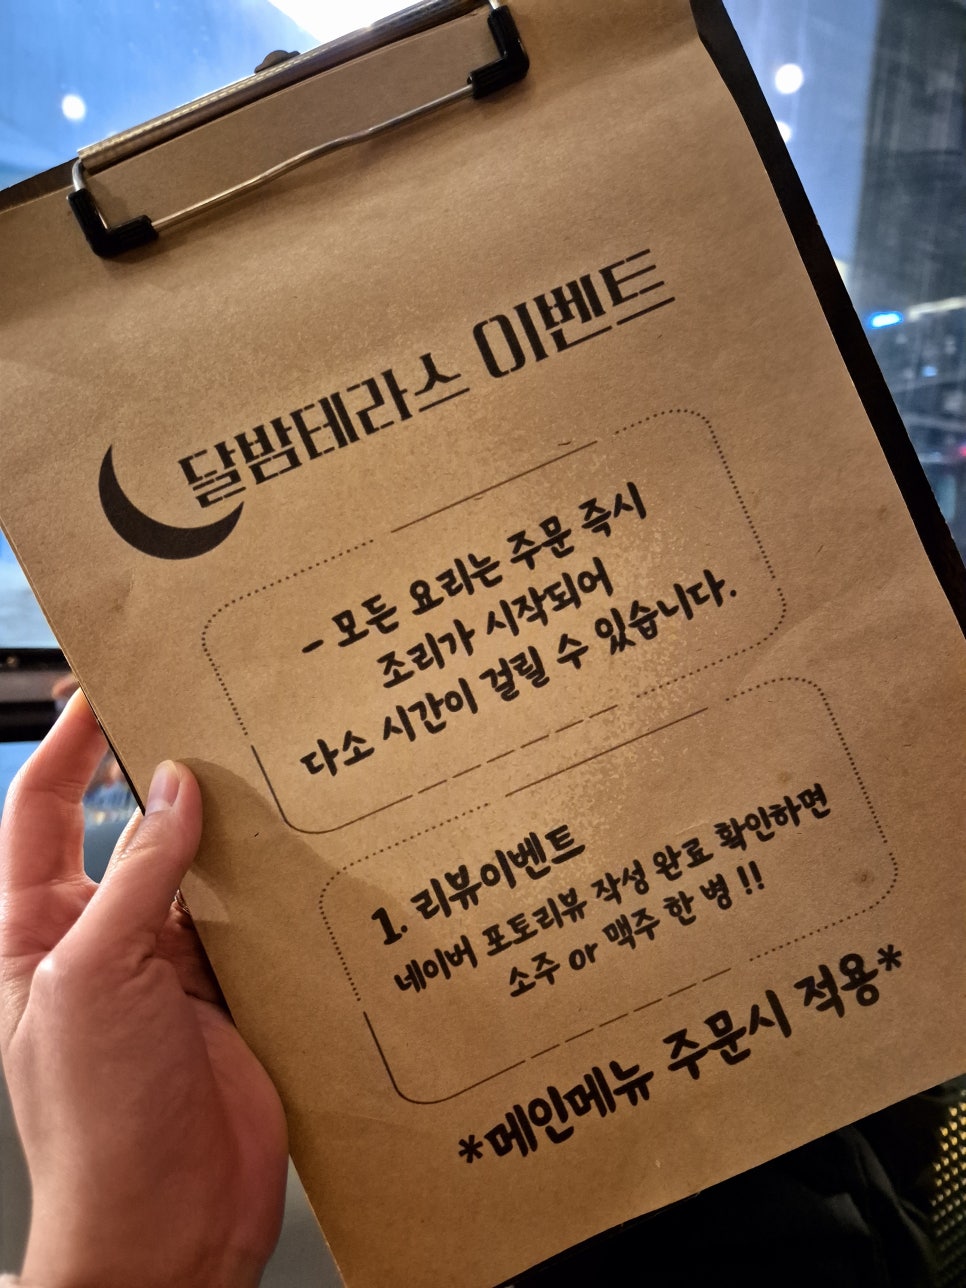 달밤테라스 이벤트
- 모든 요리는 주문 즉시
조리가 시작되어
다소 시간이 걸릴 수 있습니다.
1. 리뷰이벤트
네이버 포토리뷰 작성 완료 확인하면
소주 or 맥주 한 병 !!
*메인메뉴 주문시 적용*